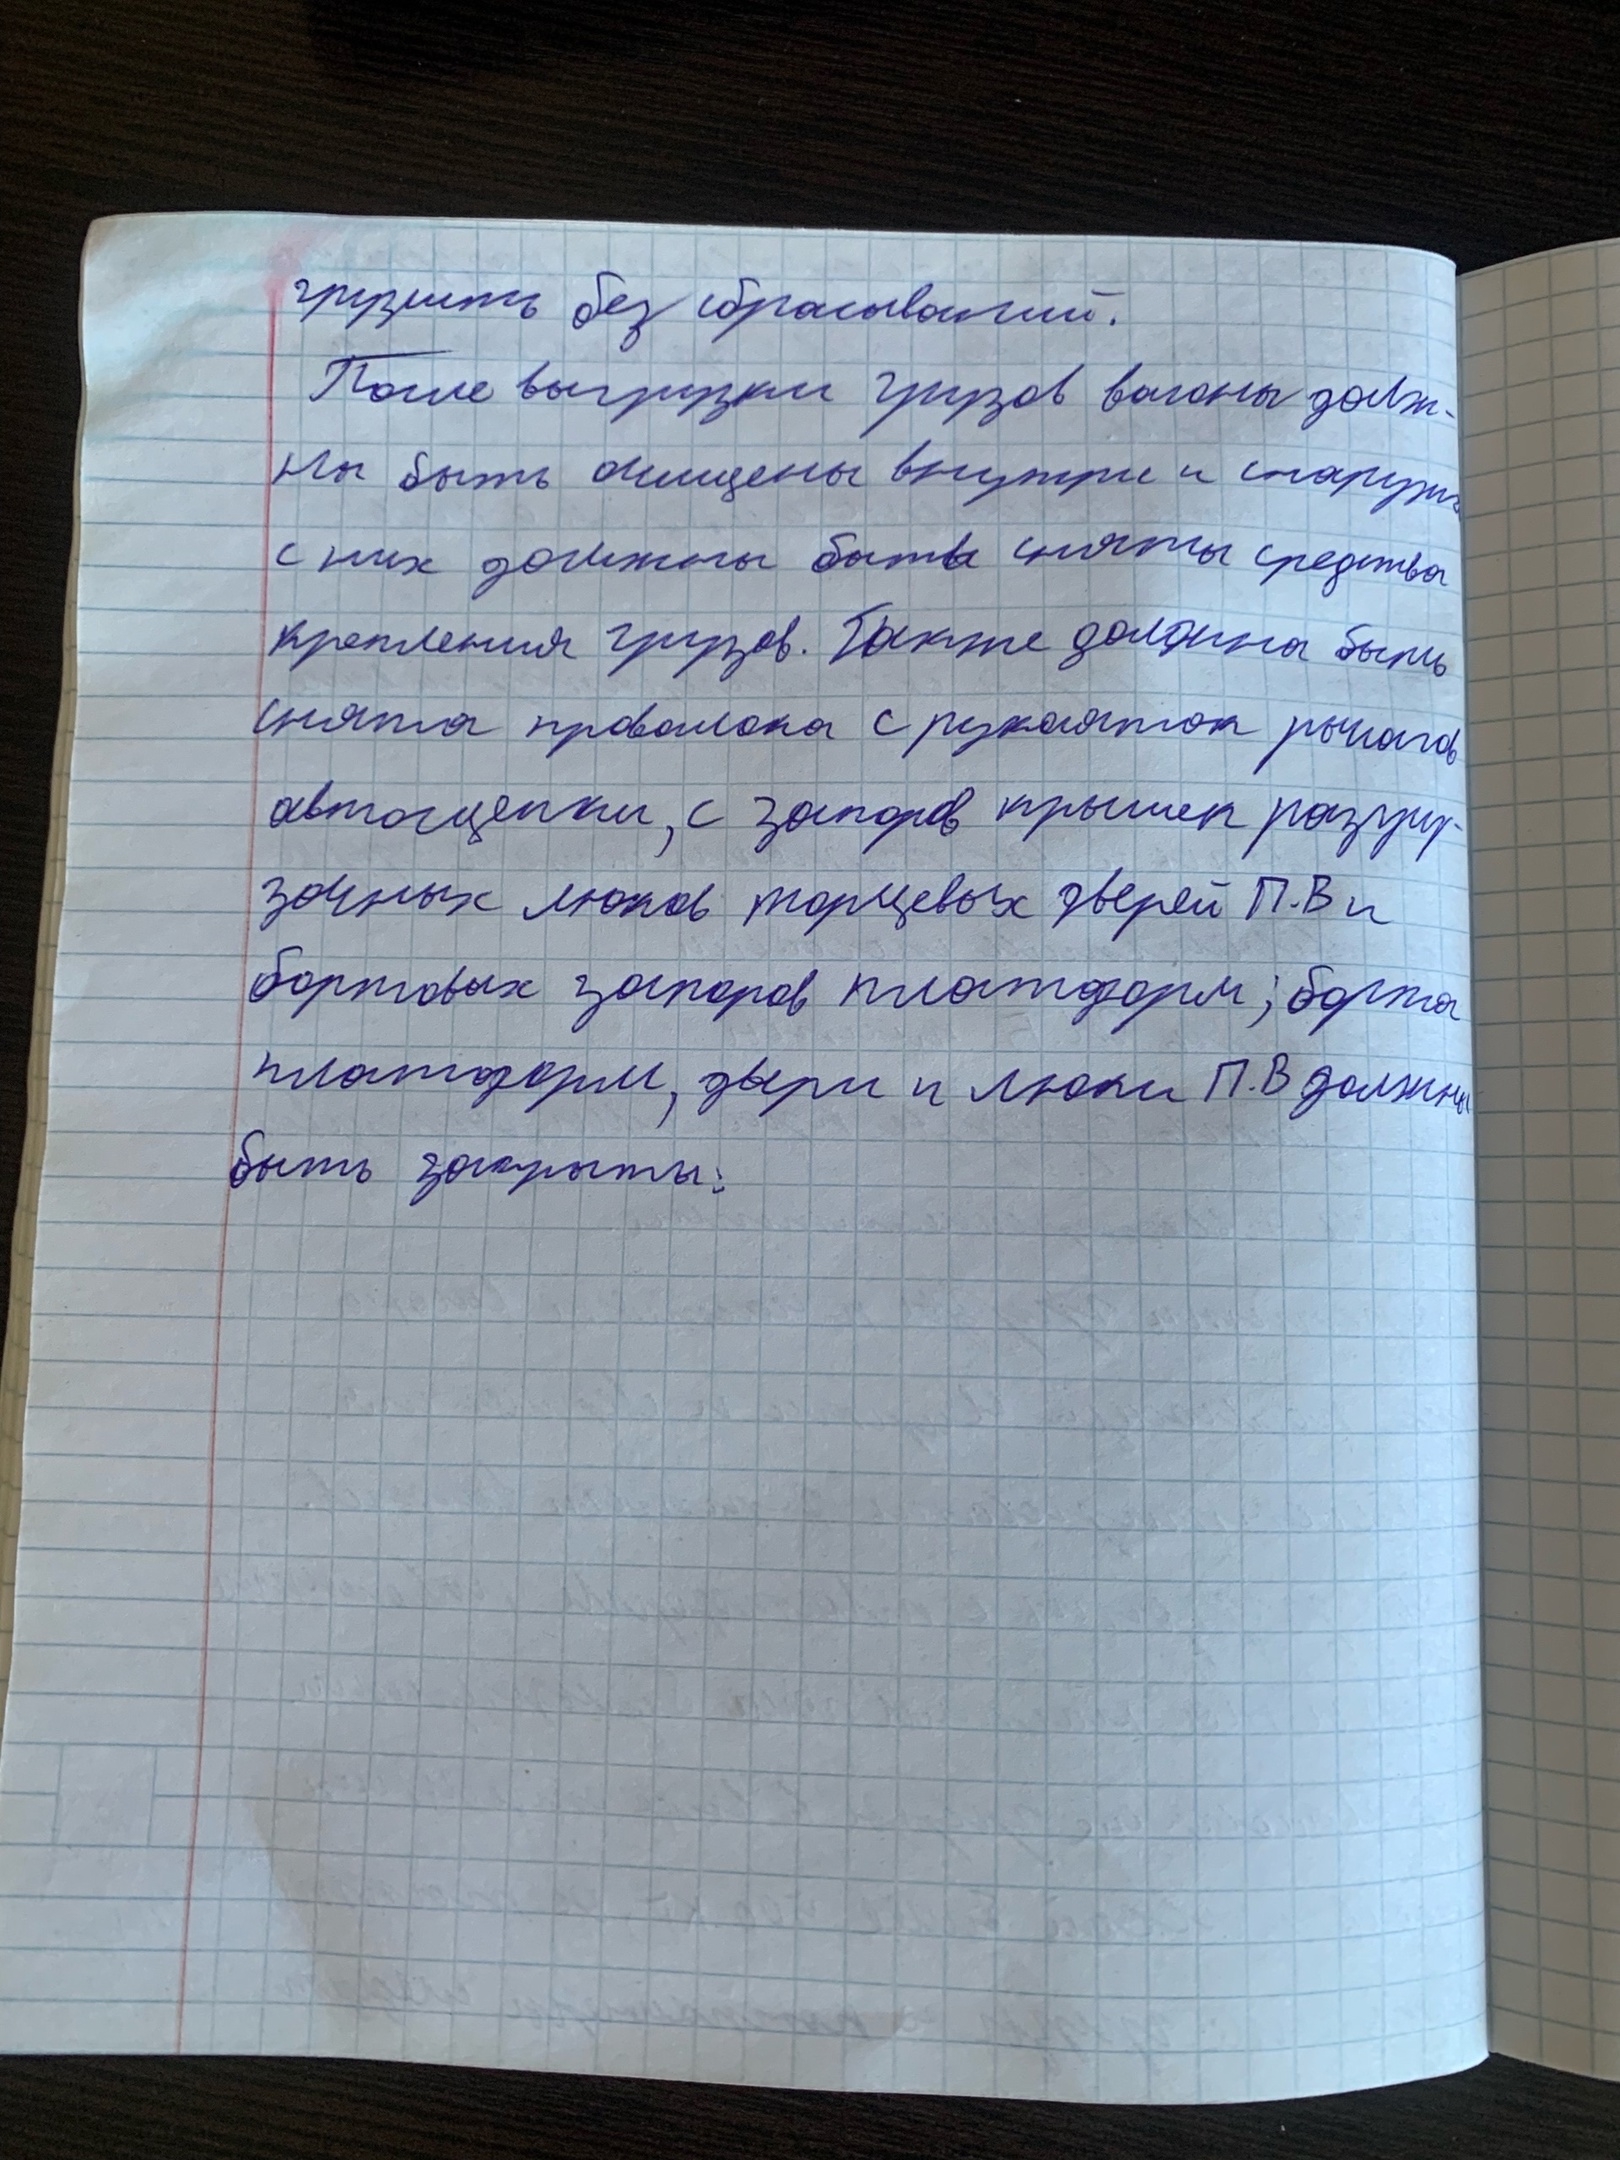 грузить без сбрасываний.
После выгрузки грузов вагоны долж-
ны быть очищены внутри и снаружи
с них должны быть сняты средства
крепления грузов. Также должна быть
снята проволока с рукояток рычагов
автосцепки, с запоров крышек разгру-
зочных люков торцевых дверей П.В и
бортовых запоров платформ; борта
платформ, двери и люки П.В должны
быть закрыты.